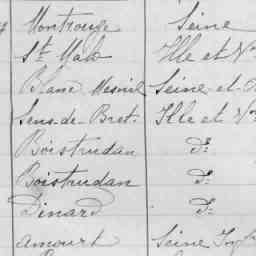 Montrouge Seine
St Malo Ille et V
Blanc Mesnil Seine et
Sens-de-Bret. Ille et V
Boistrudan d:
Boistrudan d:
Dinard d:
Amourt Seine Inf